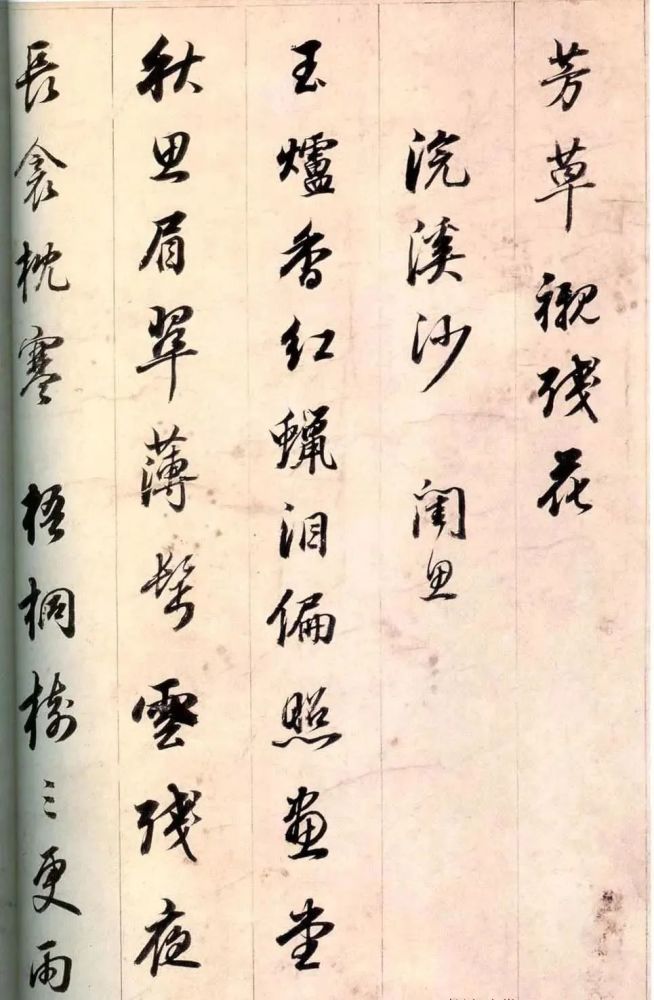 芳草襯残花
浣溪沙 闺思
玉爐香红蠟泪偏照畫堂
秋思眉翠薄髩雲残夜
長衾枕寒梧桐樹三更雨